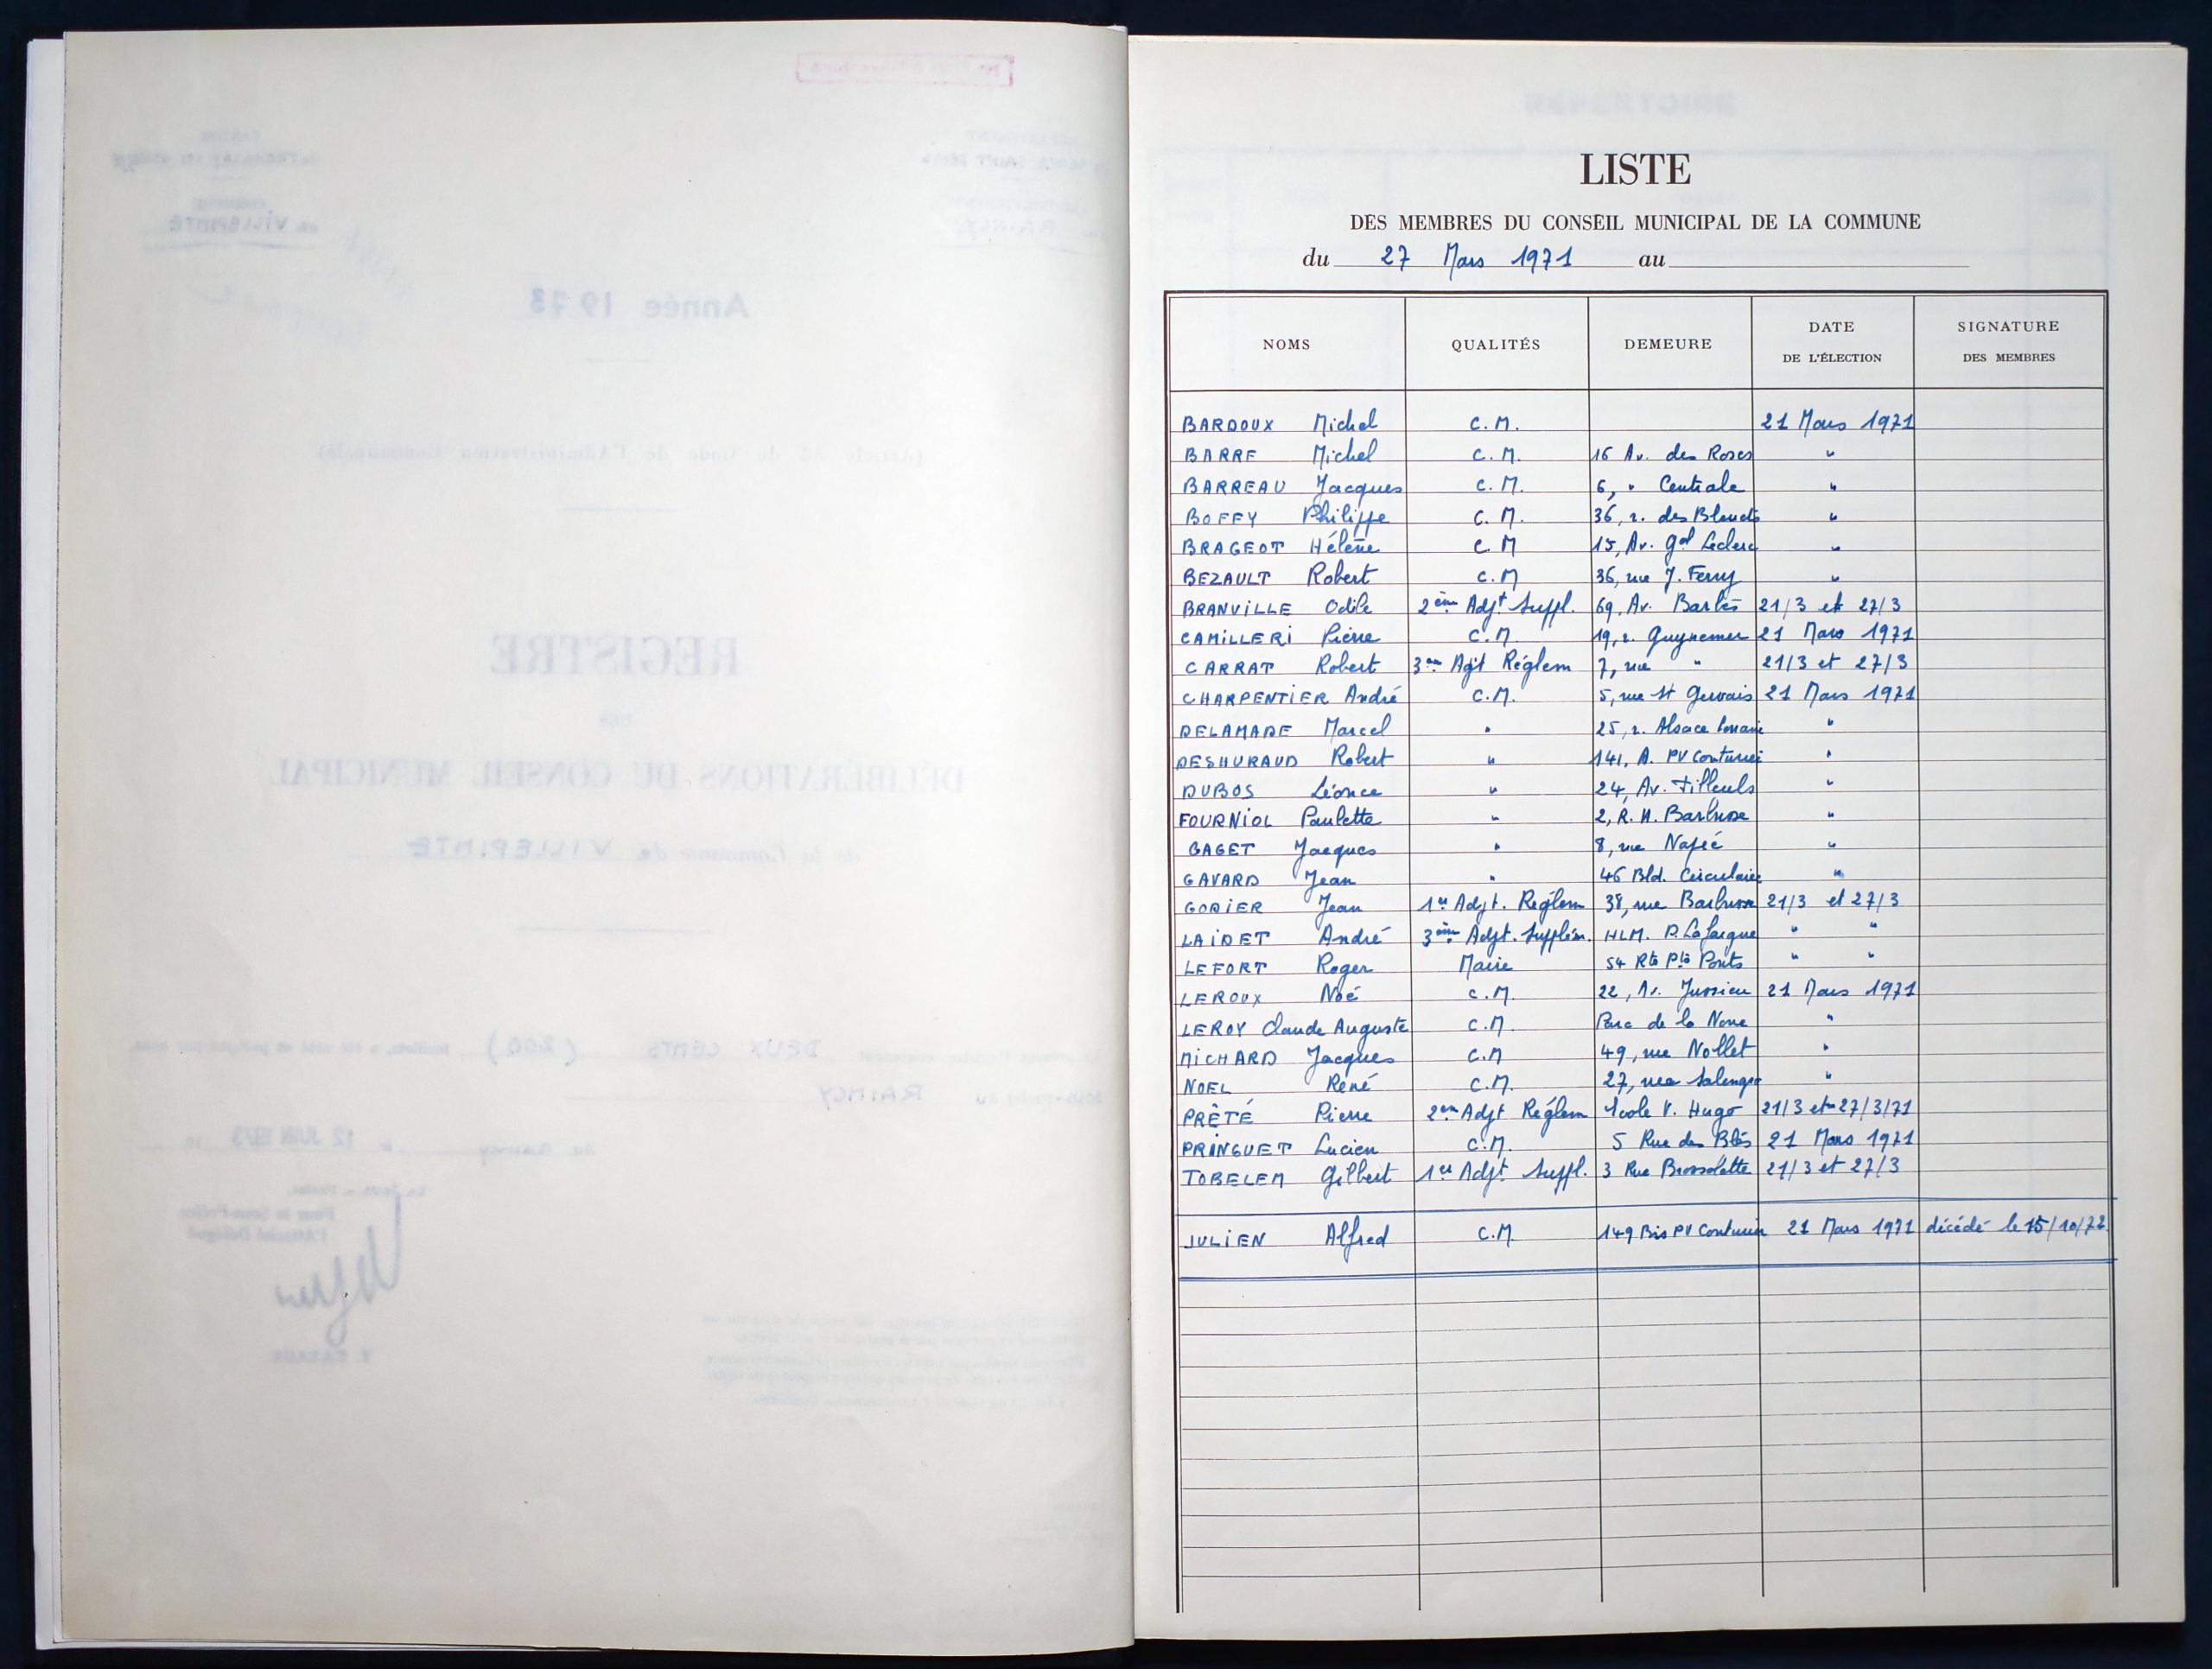 LISTE
DES MEMBRES DU CONSEIL MUNICIPAL DE LA COMMUNE
du 27 Mars 1971 au
NOMS QUALITÉS DEMEURE DATE DE L'ÉLECTION SIGNATURE DES MEMBRES
BARDOUX Michel C.M. 21 Mars 1971
BARRE Michel C.M. 16 Av. des Roses "
BARREAU Jacques C.M. 6, " Centrale "
BOFFY Philippe C.M. 36, r. des Bleuets "
BRAGEOT Hélène C.M 15, Av. Gal Leclerc "
BEZAULT Robert C.M 36, rue J. Ferry "
BRANVILLE Odile 2ème Adjt Suppl. 69, Av. Barbès 21/3 et 27/3
CAMILLERI Pierre C.M. 19, r. Guynemer 21 Mars 1971
CARRAT Robert 3em Ajt Réglem 7, rue " 21/3 et 27/3
CHARPENTIER André C.M. 5, rue St Gervais 21 Mars 1971
DELAMADE Marcel " 25, r. Alsace Lorraine "
DESHURAUD Robert " 141, A. PV Couturier "
DUBOS Léonce " 24, Av. Tilleuls "
FOURNIOL Paulette " 2, R. H. Barbusse "
GAGET Jacques " 8, rue "
GAVARD Jean " 46 Bld. Circulaire "
GODIER Jean 1er Adjt. Réglem 38, rue Barbusse 21/3 et 27/3
LAIDET André 3ème Adjt. Supplém. HLM. P. Lafargue " "
LEFORT Roger Maire 54 Rte Pts Ponts " "
LEROUX Noé C.M. 22, Av. Jussieu 21 Mars 1971
LEROY Claude Auguste C.M Parc de la Noue "
MICHARD Jacques C.M 49, rue Nollet "
NOEL René C.M. 27, rue Salengro "
PRÊTÉ Pierre 2em Adjt Réglem école V. Hugo 21/3 et 27/3/71
PRINGUET Lucien C.M. 5 Rue des Blés 21 Mars 1971
TOBELEM Gilbert 1er Adjt Suppl. 3 Rue Brossolette 21/3 et 27/3
JULIEN Alfred C.M. 149 Bis PV Couturier 21 Mars 1971 décédé le 15/10/72